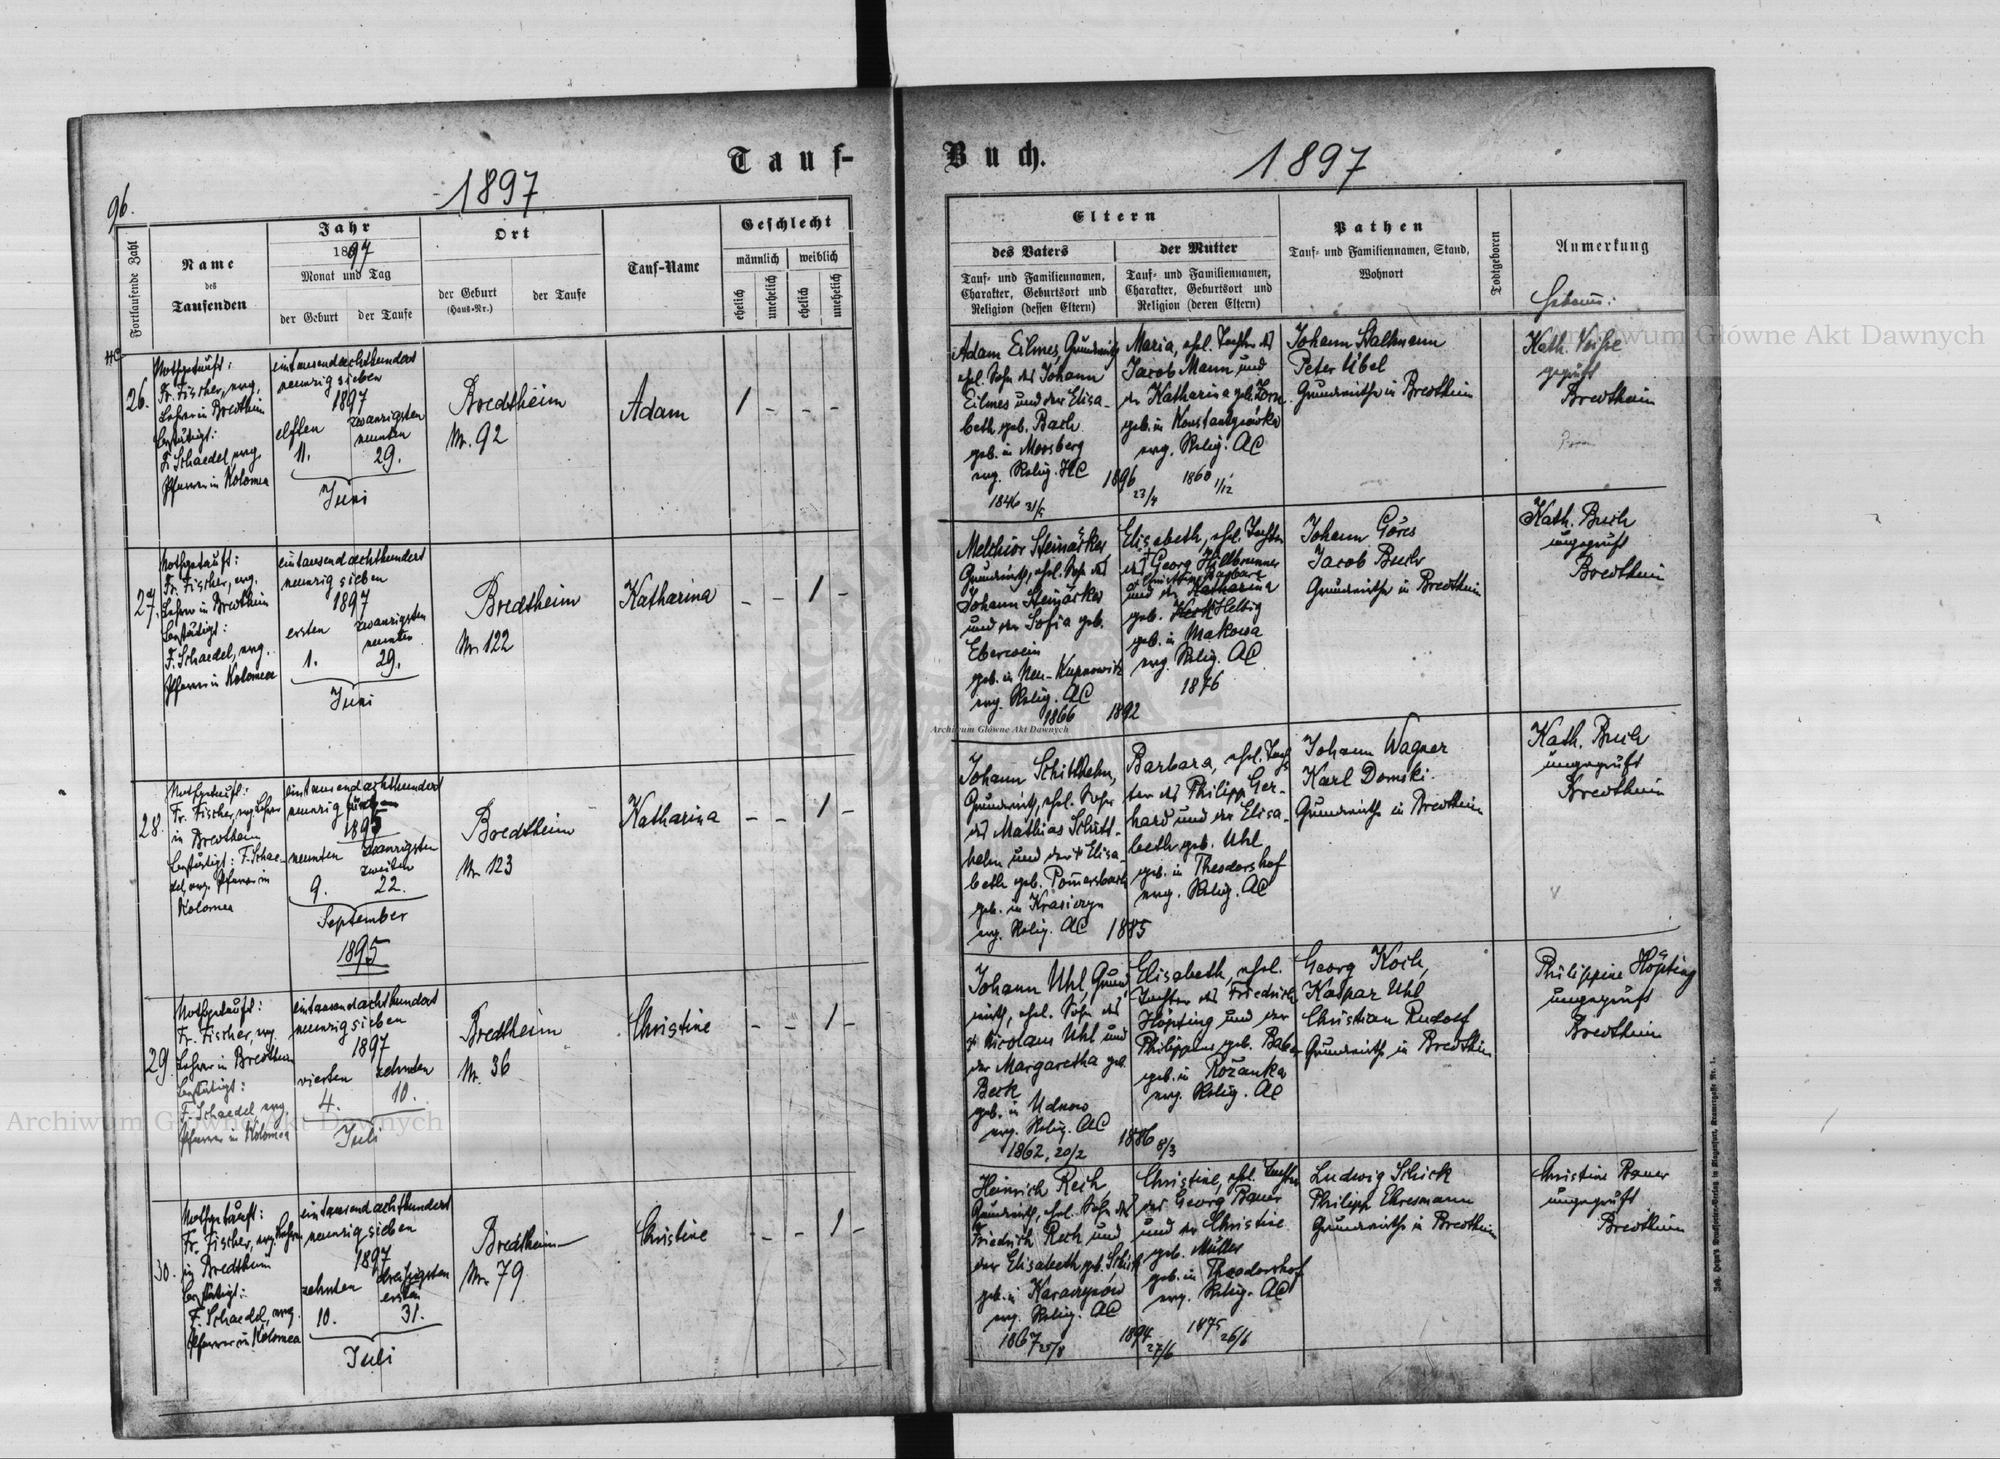 Tauf-
1897
96.
Fortlaufende Zahl
Name
des
Taufenden
Jahr
1897
Monat und Tag
der Geburt
der Taufe
Ort
der Geburt
(Haus-Nr.)
der Taufe
Tauf-Name
Geschlecht
männlich
weiblich
ehelich
unehelich
ehelich
unehelich
HC
26.
Nothgetauft:
Fr. Fischer, evg.
Lehrer in Bredtheim
bestätigt:
F. Schaedel, evg.
Pfarrer in Kolomea
eintausendachthundert
neunzig sieben
1897
elften
zwanzigsten
neunten
11.
29.
Juni
Bredtheim
Nr. 92
Adam
1 - - -
27.
Nothgetauft:
Fr. Fischer, evg.
Lehrer in Bredtheim
bestätigt:
F. Schaedel, evg.
Pfarrer in Kolomea
eintausendachthundert
neunzig sieben
1897
ersten
zwanzigsten
neunten
1.
29.
Juni
Bredtheim
Nr. 122
Katharina
- - 1 -
28.
Nothgetauft:
Fr. Fischer, evg. Lehrer
in Bredtheim
bestätigt: F. Schae-
del, evg. Pfarrer in
Kolomea
eintausendachthundert
neunzig fünf
1895
neunten
zwanzigsten
zweiten
9.
22.
September
1895
Bredtheim
Nr. 123
Katharina
- - 1 -
29
Nothgetauft:
Fr. Fischer, evg.
Lehrer in Bredtheim
bestätigt:
F. Schaedel, evg.
Pfarrer in Kolomea
eintausendachthundert
neunzig sieben
1897
vierten
zehnten
4.
10.
Juli
Bredtheim
Nr. 36
Christine
- - 1 -
30.
Nothgetauft:
Fr. Fischer, evg. Lehrer
in Bredtheim
bestätigt:
F. Schaedel, evg.
Pfarrer in Kolomea
eintausendachthundert
neunzig sieben
1897
zehnten
dreißigsten
ersten
10.
31.
Juli
Bredtheim
Nr. 79
Christine
- - 1 -
Buch.
1897
Eltern
des Vaters
Tauf- und Familiennamen,
Charakter, Geburtsort und
Religion (dessen Eltern)
der Mutter
Tauf- und Familiennamen,
Charakter, Geburtsort und
Religion (deren Eltern)
Pathen
Tauf- und Familiennamen, Stand,
Wohnort
Todtgeboren
Anmerkung
Hebamme:
Adam Eilmes, Grundwirth
ehel. Sohn des Johann
Eilmes und der Elisa-
beth geb. Bach
geb. in Moosberg
evg. Relig. HC
1846 31/5
1896
23/4
Maria, ehel. Tochter des
Jacob Mann und
der Katharina geb. Zorn
geb. in Konstantynówka
evg. Relig. AC
1860 1/12
Johann Stallmann
Peter Ubel
Grundwirthe in Bredtheim
Kath. Veihe
geprüft
Bredtheim
Melchior Steinäcker,
Grundwirth, ehel. Sohn des
Johann Steinäcker
und der Sofia geb.
Eberwein
geb. in Neu-Kupnowitz
evg. Relig. AC
1866
1892
Elisabeth, ehel. Tochter
des † Georg Hillbrunner
und der Katharina
Barbara
geb. Helbig
geb. in Makowa
evg. Relig. AC
1876
Johann Görs
Jacob Buch
Grundwirthe in Bredtheim
Kath. Buch
ungeprüft
Bredtheim
Johann Schitthelm,
Grundwirth, ehel. Sohn
des Mathias Schitt-
helm und der † Elisa-
beth geb. Pomersbach
geb. in Krasiczyn
evg. Relig. AC
1885
Barbara, ehel. Toch-
ter des Philipp Ger-
hard und der Elisa-
beth geb. Uhl
geb. in Theodorshof
evg. Relig. AC
Johann Wagner
Karl Domski
Grundwirthe in Bredtheim
Kath. Buch
ungeprüft
Bredtheim
Johann Uhl, Grund-
wirth, ehel. Sohn des
† Nicolaus Uhl und
der Margaretha geb.
Beck
geb. in Udnow
evg. Relig. AC
1862, 20/2
1886 8/3
Elisabeth, ehel.
Tochter des Friedrich
Höpting und der
Philippine geb.
geb. in Rożanka
evg. Relig. AC
Georg Koch,
Kaspar Uhl
Christian Rudolf
Grundwirthe in Bredtheim
Philippine Höpting
ungeprüft
Bredtheim
Heinrich Rech,
Grundwirth, ehel. Sohn des
Friedrich Rech und
der Elisabeth geb. Schick
geb. in Karaczynów
evg. Relig. AC
1867 25/8
1894
27/6
Christine, ehel. Tochter
des Georg Bauer
und der Christine
geb. Müller
geb. in Theodorshof
evg. Relig. AC
1875 26/6
Ludwig Schick
Philipp Ehresmann
Grundwirthe in Bredtheim
Christine Bauer
ungeprüft
Bredtheim
Archiwum Główne Akt Dawnych
Archiwum Główne Akt Dawnych
Archiwum Główne Akt Dawnych